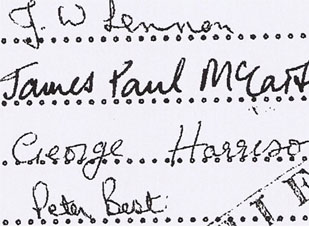 J. W Lennon
James Paul McCart
George Harriso
Peter Best